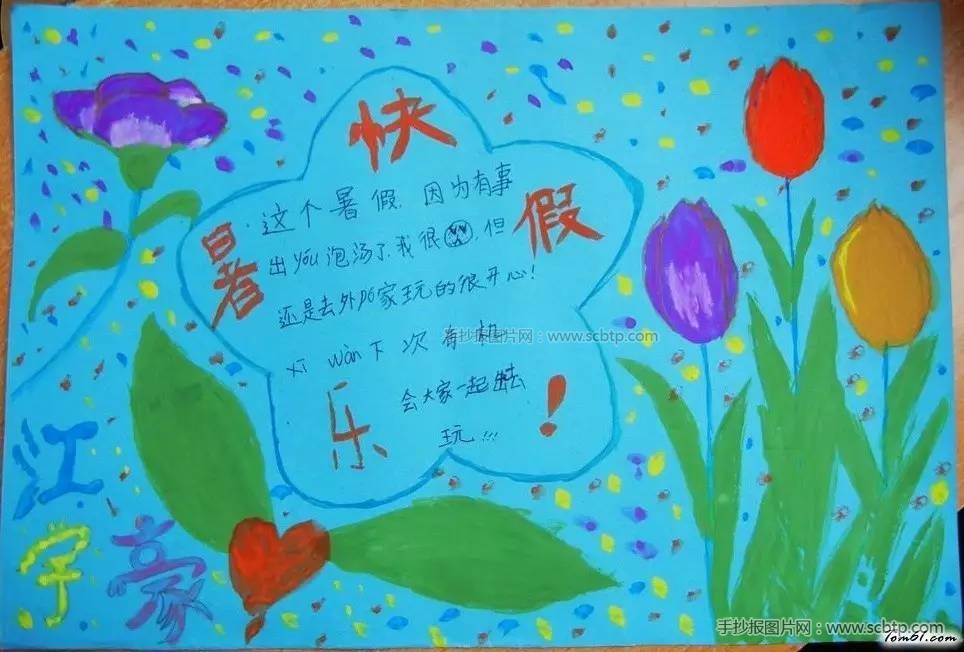 快
暑 假
这个暑假，因为有事
出 you 泡汤了，我很，但
还是去外po家玩的很开心！
xi wàn 下 次 有 机
会大家一起出去
玩!!!
乐 ！
江
宇 豪
手抄报图片网：www.scbtp.com
手抄报图片网：www.scbtp.com
Tom61.com